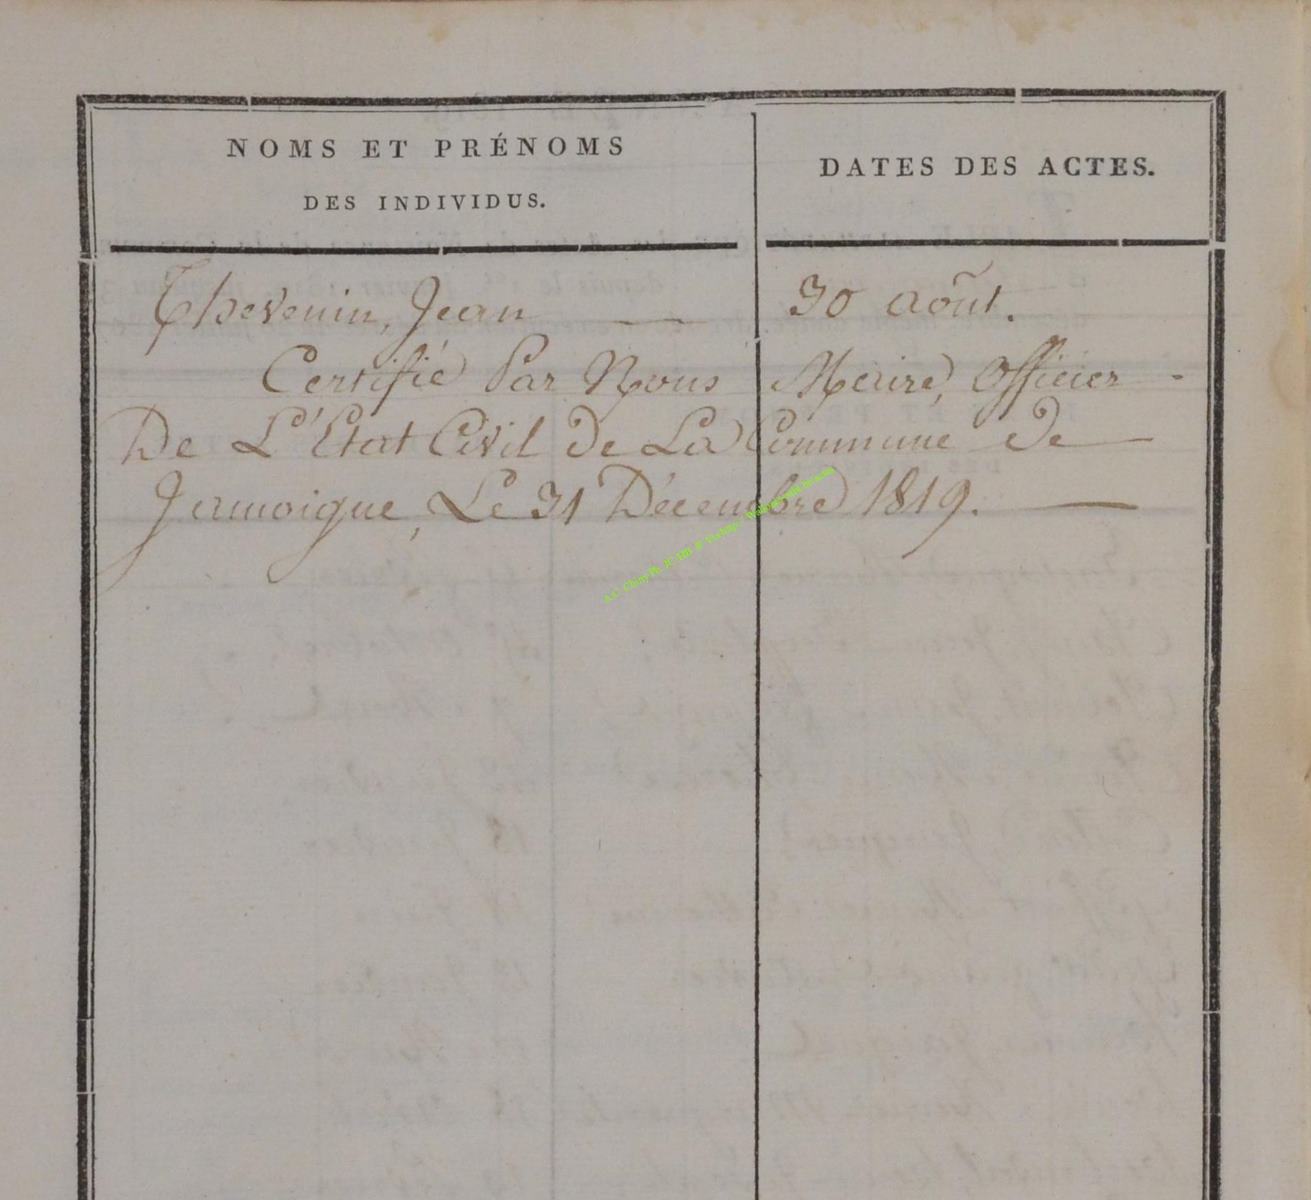 NOMS ET PRÉNOMS
DES INDIVIDUS.
DATES DES ACTES.
Thevenin, Jean — 30 août.
Certifié Par Nous Maire, Officier -
De L'Etat Civil De La Commune de —
Jamoigne, Le 31 Décembre 1819. —